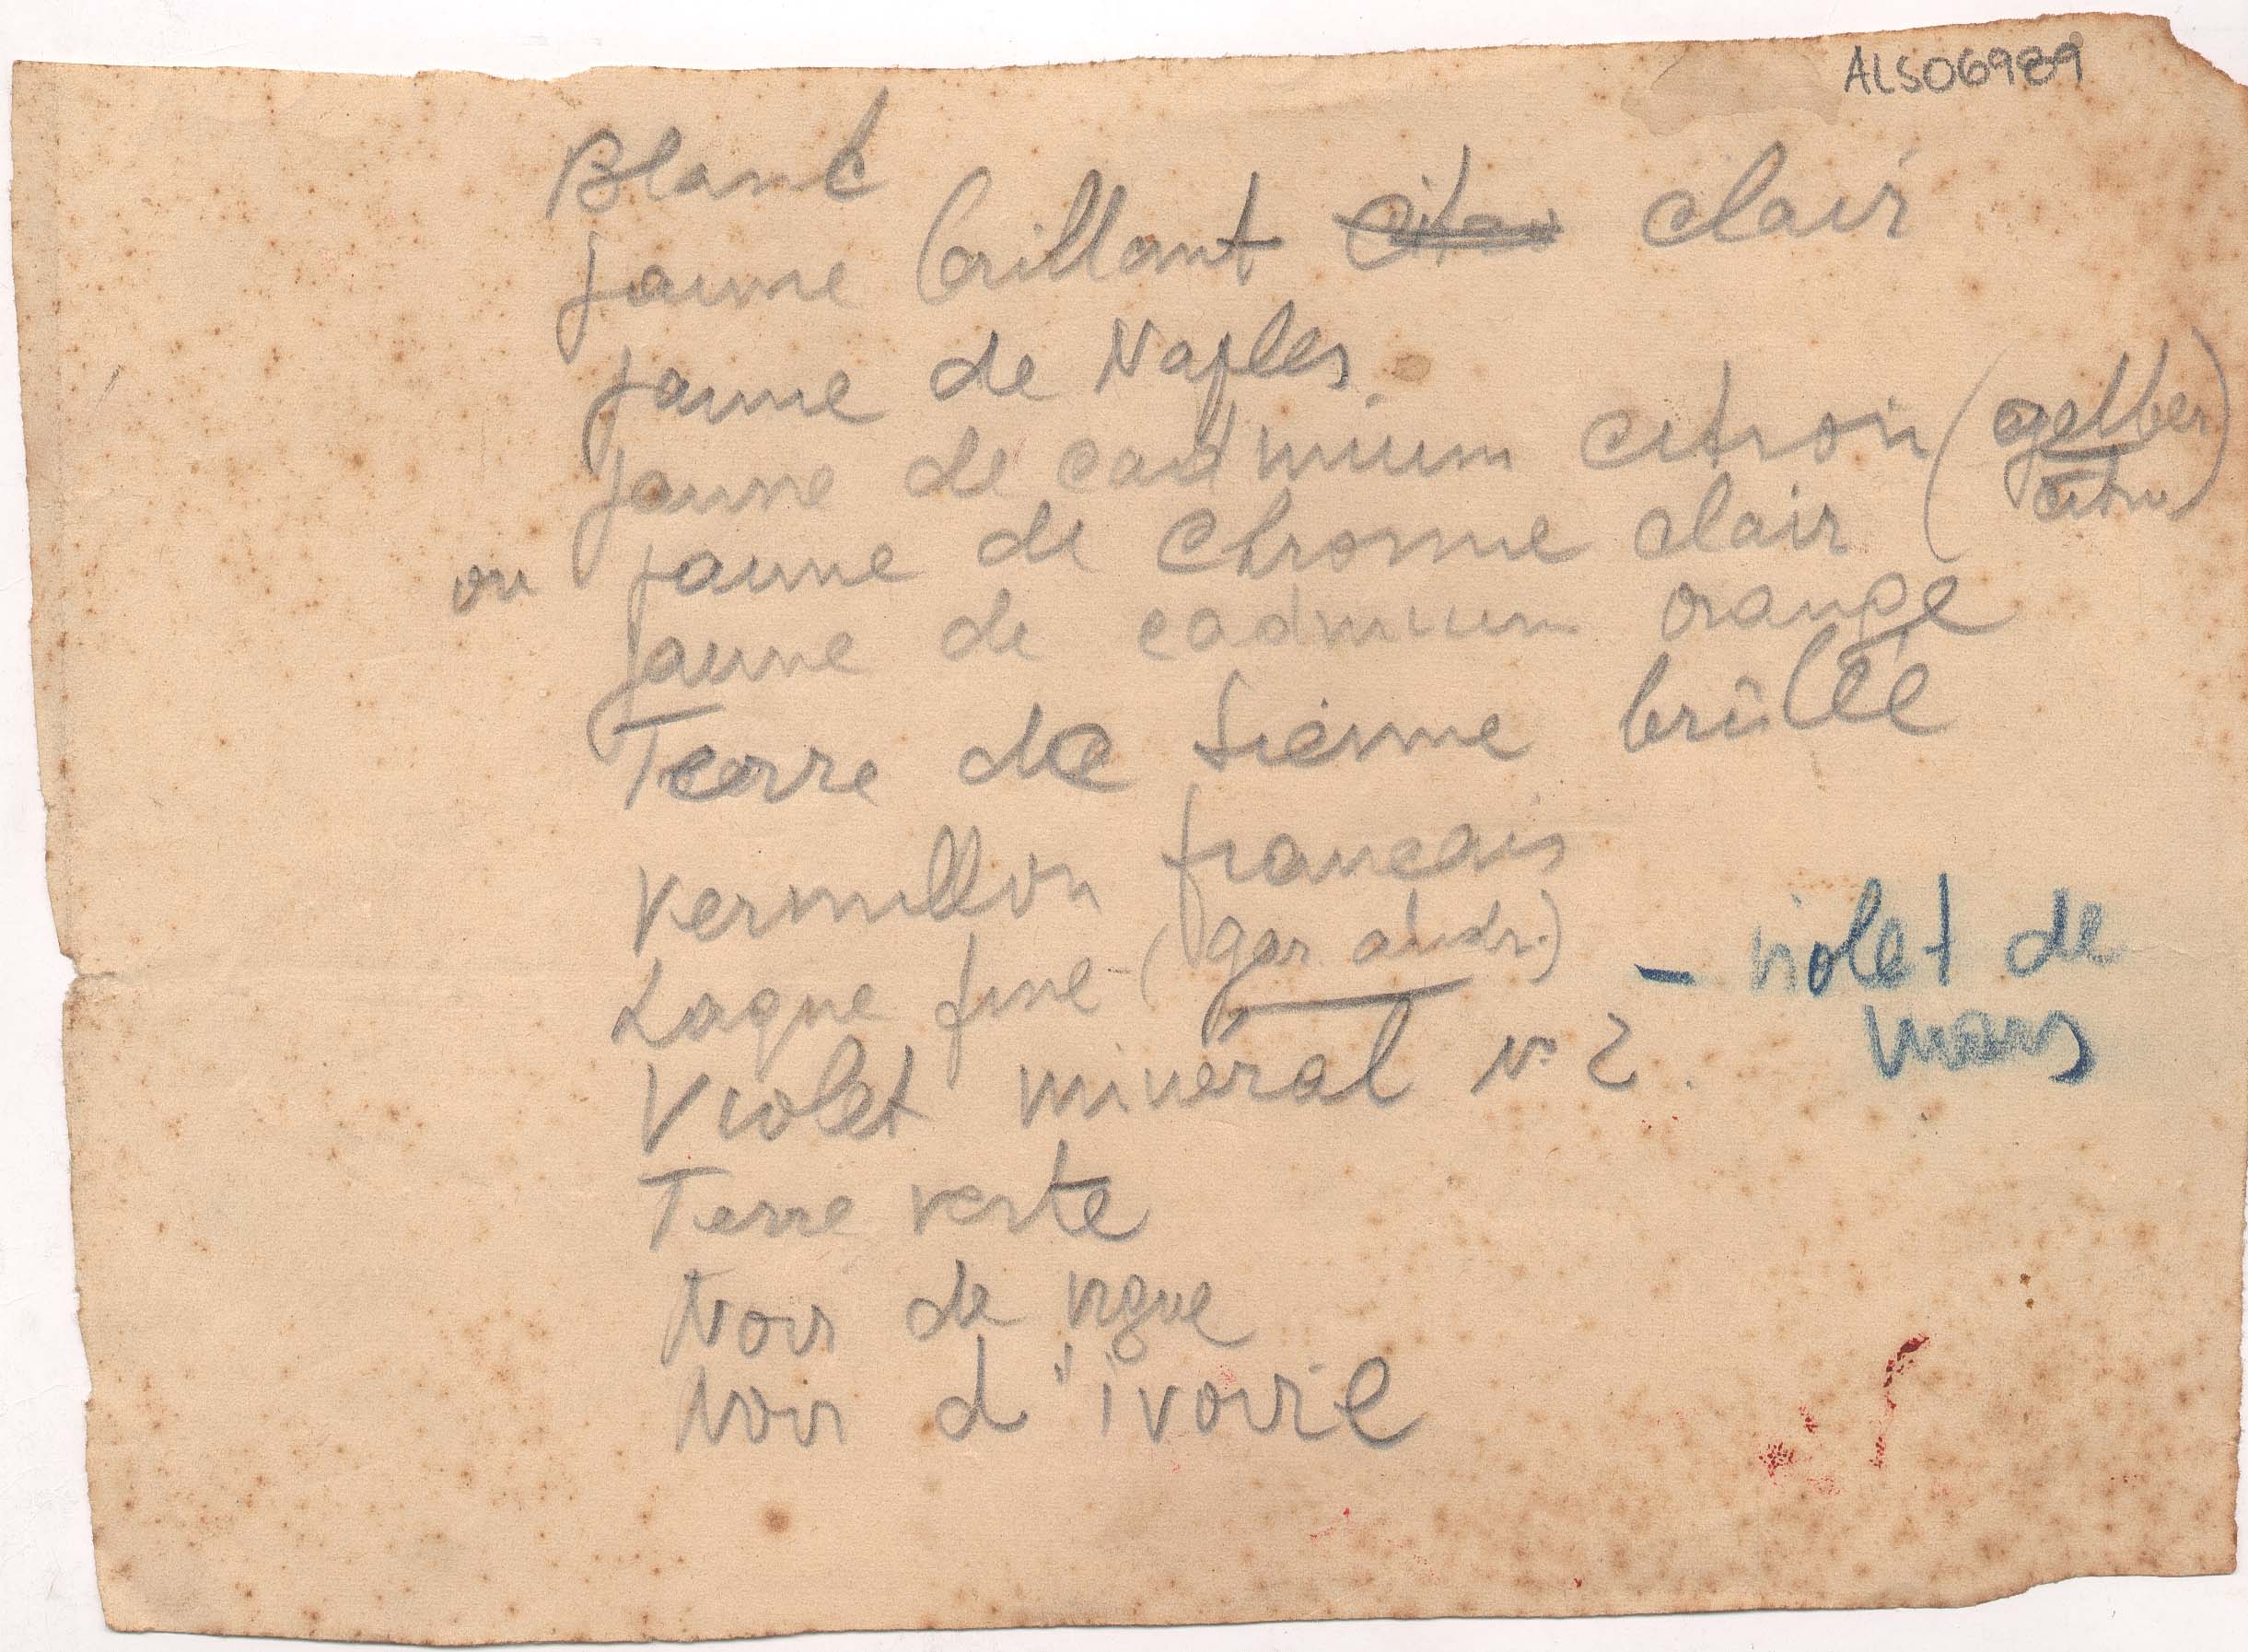 ALS06989
Blanc
jaune brillant clair
jaune de Naples
jaune de cadmium citron (gelber
citru)
ou jaune de chrome clair
jaune de cadmium orange
Terre de Sienne brûlée
Vermillon français
Laque fine (gar.
Violet minéral n° 2. – violet de
mars
Terre verte
Noir de vigne
Noir d'ivoire